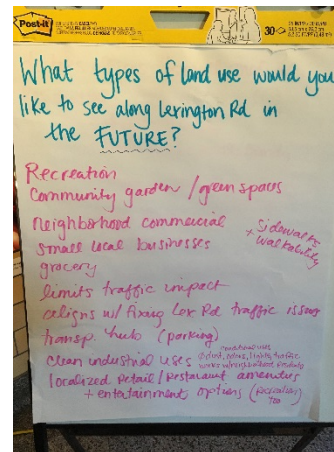 Post-it
30
What types of land use would you
like to see along Lexington Rd in
the FUTURE?
Recreation
Community garden / green spaces
neighborhood commercial
+ Sidewalks
walkability
small local businesses
grocery
limits traffic impact
aligns w/ fixing Lex Rd traffic issues
transp. hub (parking)
clean industrial uses
lights, traffic
localized retail / restaurant amenities
+ entertainment options (recreation
too)